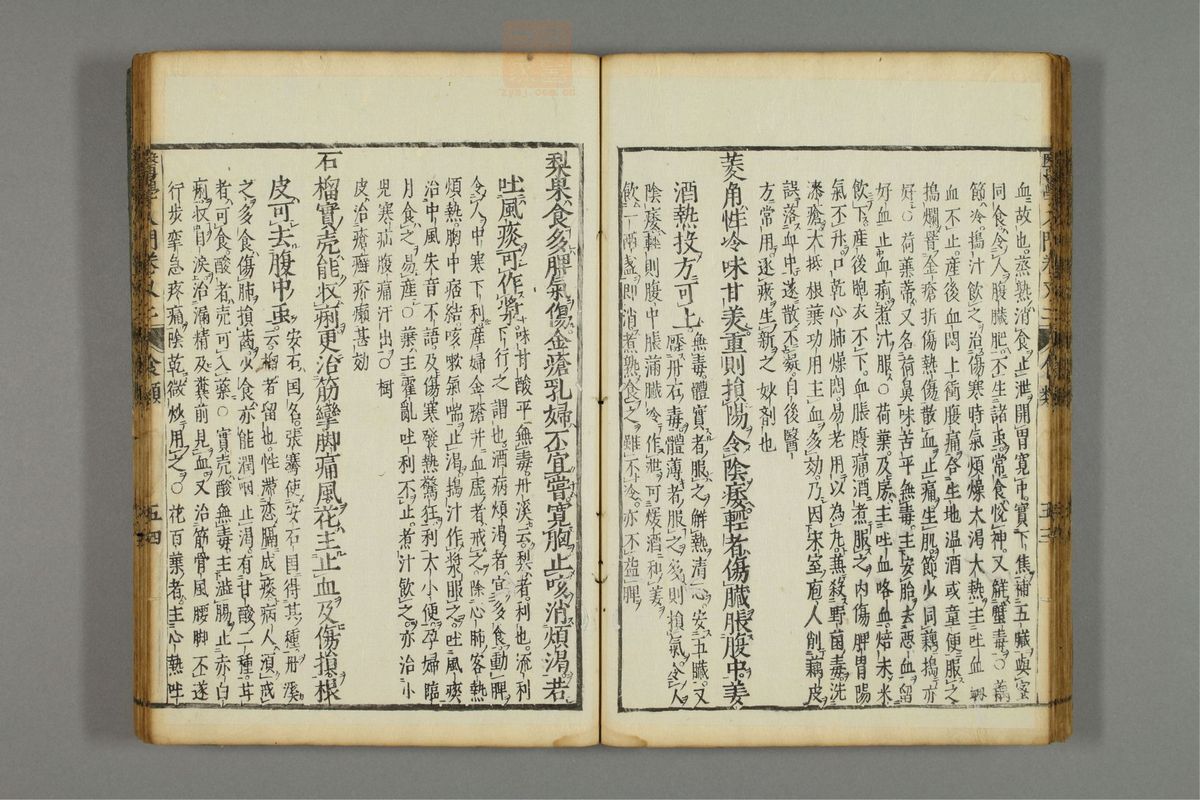 血故也蒸熟消食止泄開胃寬中實下焦補五臟與蜜
同食令人腹臟肥不生諸虫常食悅神又解蟹毒○藕
節冷搗汁飲之治傷寒時氣煩燥大渴大熱主吐血衂
血不止産後血悶上衝腹痛合生地温酒或童便服之
搗爛罯金瘡折傷熱傷散血止痛生肌節少同藕搗亦
好○荷葉蒂又名荷鼻味苦平無毒主安胎去惡血留
好血止血痢煮汁服○荷葉及房主吐血咯血焙末米
飲下産後胞衣不下血脹腹痛酒煮服之内傷脾胃陽
氣不升口乾心肺燥悶易老用以為丸兼殺野菌毒洗
漆瘡大抵根葉功用主血多効乃因宋室庖人削藕皮
誤落血中遂散不凝自後醫
方常用逐瘀生新之妙劑也
菱角性冷味甘美重則損陽令陰痿輕者傷臟脹腹中姜
酒熱投方可止
無毒體實者服之解熱清心安五臟又
壓丹石毒體薄者服之多則損氣令人
陰痿輕則腹中脹滿臟冷作泄可煖酒和姜
飲一兩盞即消煮熟食之雖不冷亦不益脾
醫學入門卷又二
食類
五四
梨果食多脾氣傷金瘡乳婦不宜嘗寬胸止咳消煩渴若
吐風痰可作漿
味甘酸平無毒丹溪云梨者利也流利
下行之謂也酒病煩渴者宜多食動脾
令人中寒下利産婦金瘡并血虛者戒之除心肺客熱
煩熱胸中痞結咳嗽氣喘止渴搗汁作漿服之吐風痰
治中風失音不語及傷寒發熱驚狂利大小便孕婦臨
月食之易産○葉主霍亂吐利不止煮汁飲之亦治小
兒寒疝腹痛汗出○樹
皮治瘡癬疥癩甚効
石榴實殼能収痢更治筋攣脚痛風花主止血及傷損根
皮可去腹中虫
安石国名張騫使安石国得其種丹溪
云榴者留也性滯恋膈成痰病人須戒
之多食傷肺損齒少食亦能潤咽止渴有甘酸二種甘
者可食酸者殼可入藥○實殼酸無毒主澁腸止赤白
痢収目淚治漏精及糞前見血又治筋骨風腰脚不遂
行步攣急疼痛陰乾微炒用之○花百葉者主心熱吐